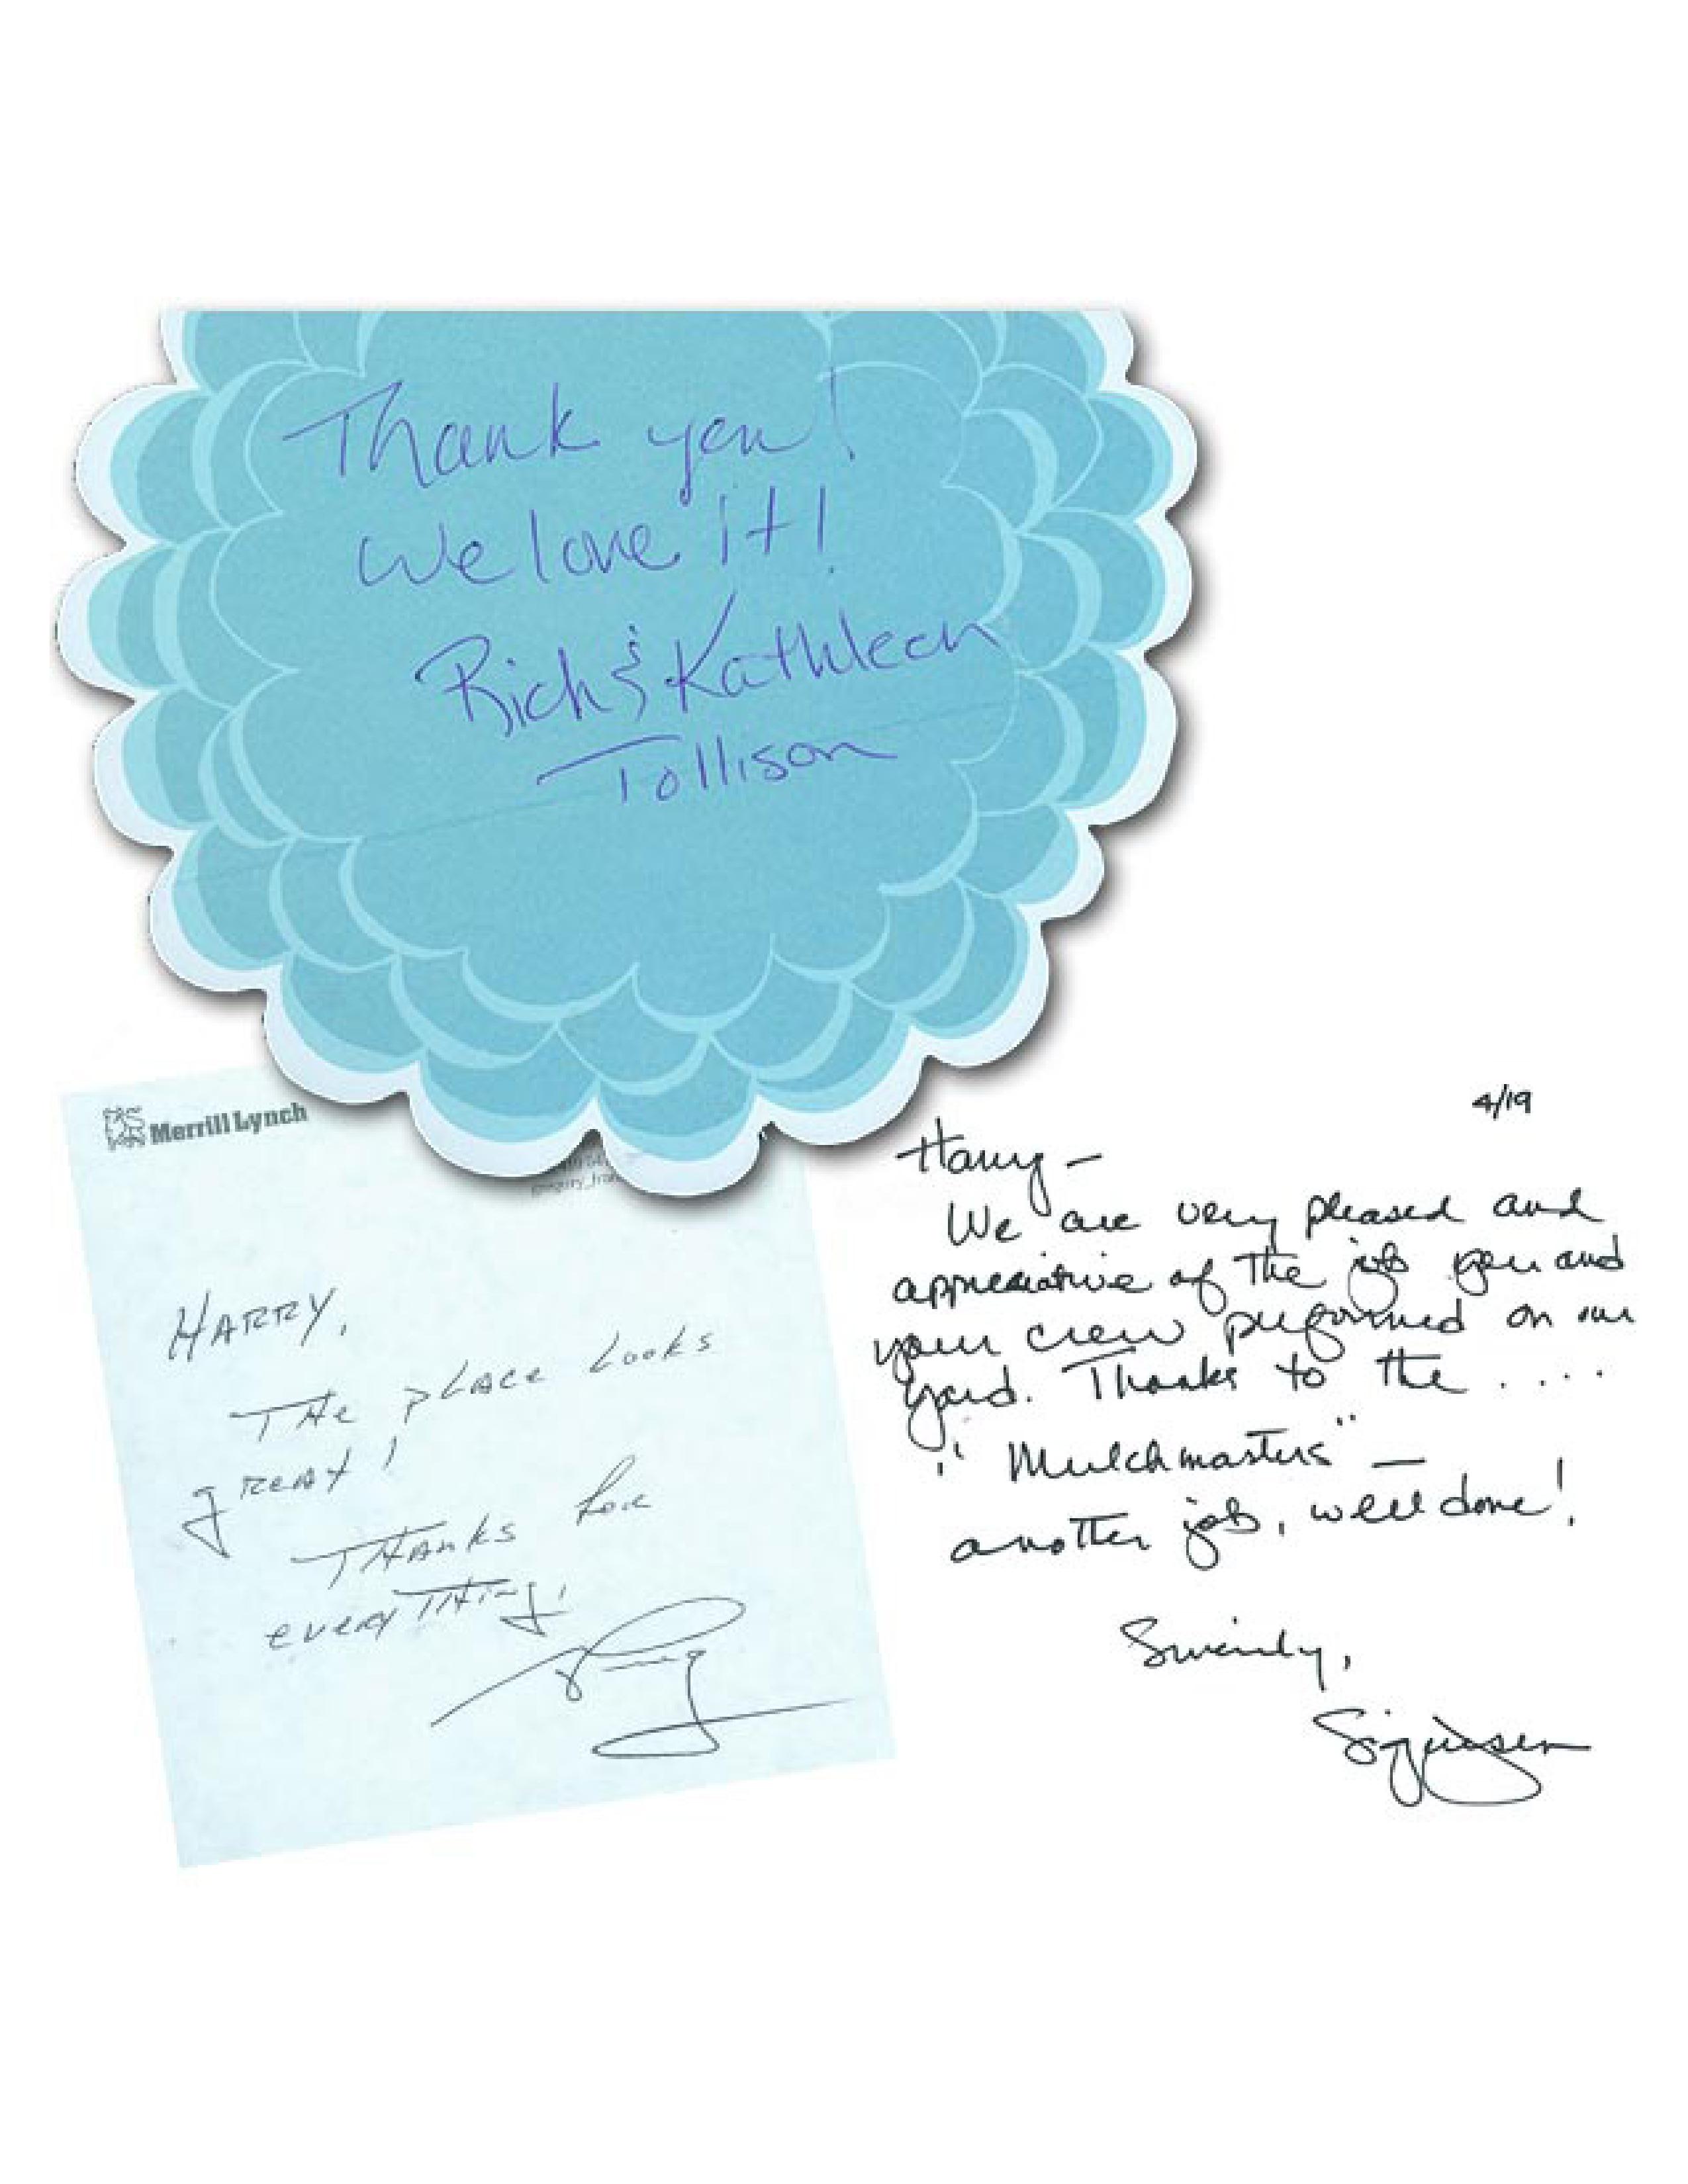 Thank you!
We love it!
Rich & Kathleen
Tollison
Merrill Lynch
HARRY,
The place looks
great!
Thanks for
everything,
4/19
Harry –
We are very pleased and
appreciative of the job you and
your crew preformed on our
yard. Thanks to the ....
"Mulchmasters" –
another job, well done!
Sincerely,